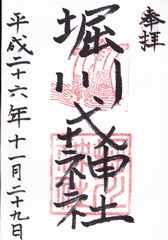 奉拝
堀川戎神社
平成二十六年十一月二十九日